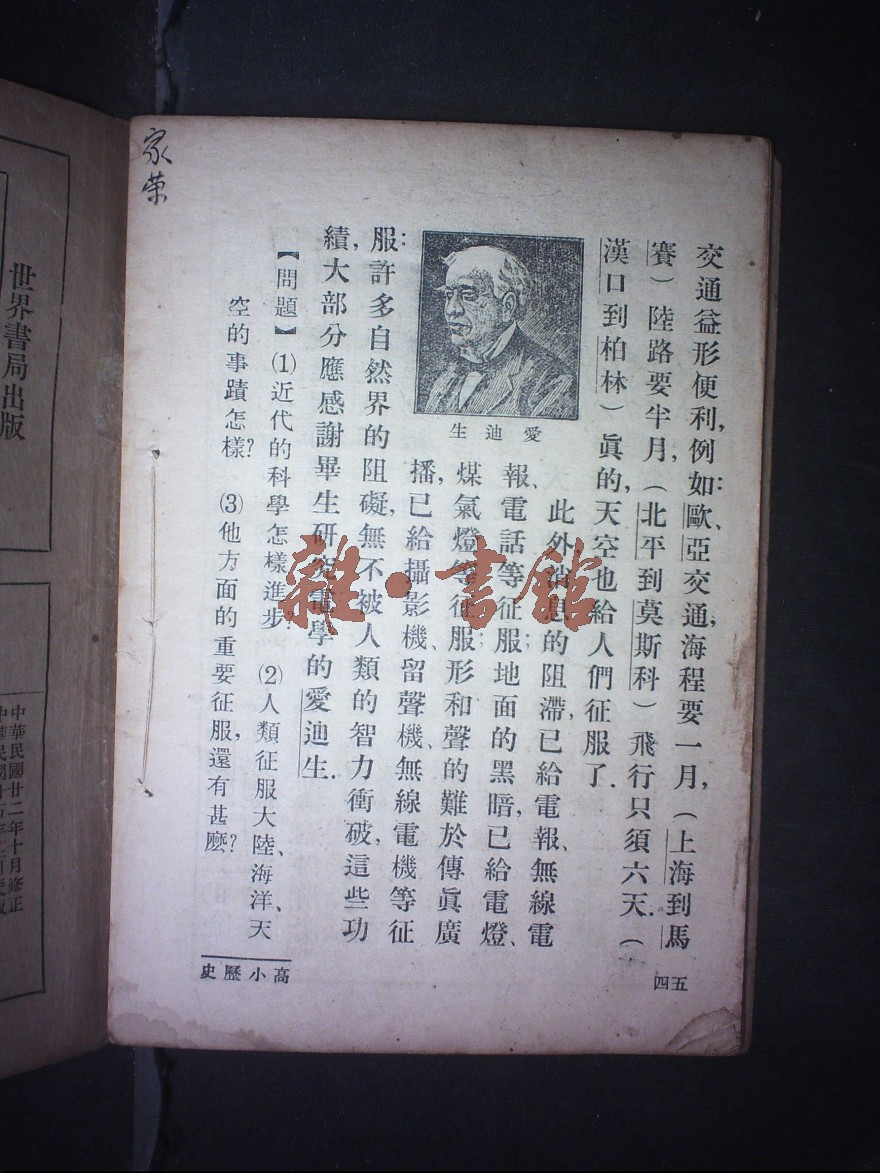 交通益形便利,例如:歐、亞交通,海程要一月,(上海到馬
賽)陸路要半月,(北平到莫斯科)飛行只須六天.(
漢口到柏林)眞的,天空也給人們征服了.
此外消息的阻滯,已給電報、無線電
報、電話等征服;地面的黑暗,已給電燈、
煤氣燈等征服;形和聲的難於傳眞廣
播,已給攝影機、留聲機、無線電機等征
服:許多自然界的阻礙,無不被人類的智力衝破,這些功
績,大部分應感謝畢生研究電學的愛迪生.
愛迪生
【問題】(1)近代的科學怎樣進步? (2)人類征服大陸、海洋、天
空的事蹟怎樣? (3)他方面的重要征服,還有甚麼?
五四
高小歷史
家荣
世界書局出版
中華民國廿二年十月修正
雜·書館